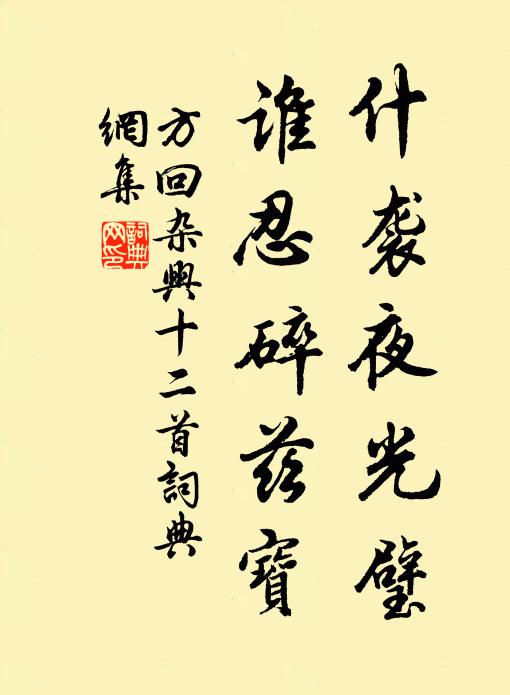 什袭夜光璧
谁忍碎兹寶
方回杂興十二首詞典
網集
詞典
网印